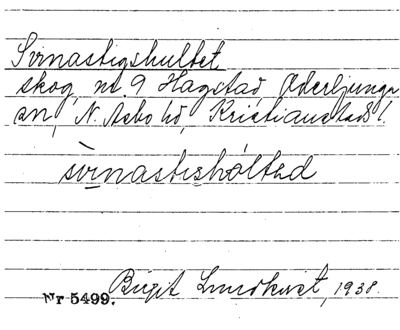 Svinastigshultet
skog, nr. 9 Hagstad, Oderljunga
sn, N. Asbo hd, Kristianstads l.
svìnastishóltəd
Birgit Lundkvist, 1938.
Nr 5499.